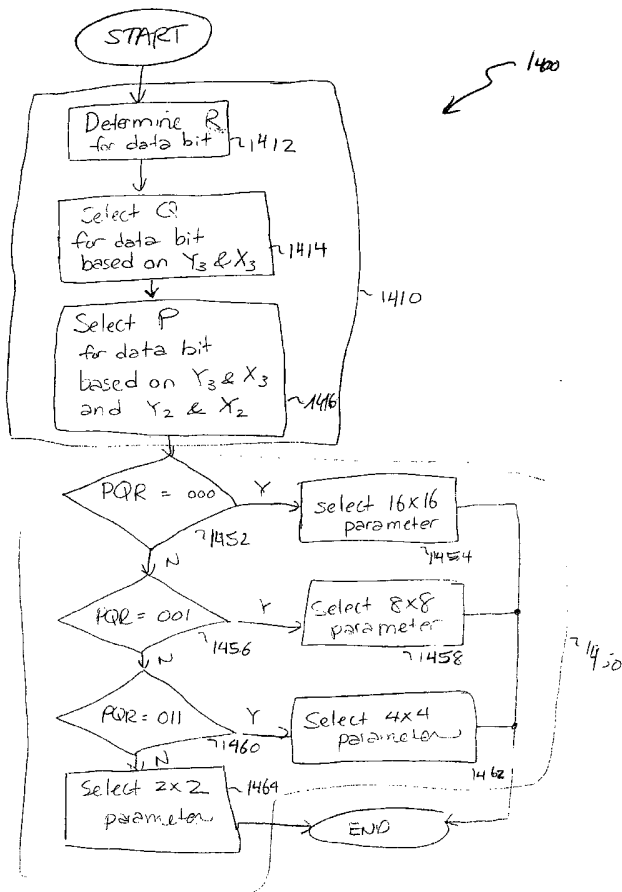 START
1400
Determine R
for data bit
1412
Select Q
for data bit
based on Y₃ & X₃
1414
1410
Select P
for data bit
based on Y₃ & X₃
and Y₂ & X₂
1416
PQR = 000
Y
select 16x16
parameter
1452
1454
N
PQR = 001
Y
Select 8x8
parameter
1456
1458
N
PQR = 011
Y
Select 4x4
parameter
1460
1462
N
Select 2x2
parameter
1464
END